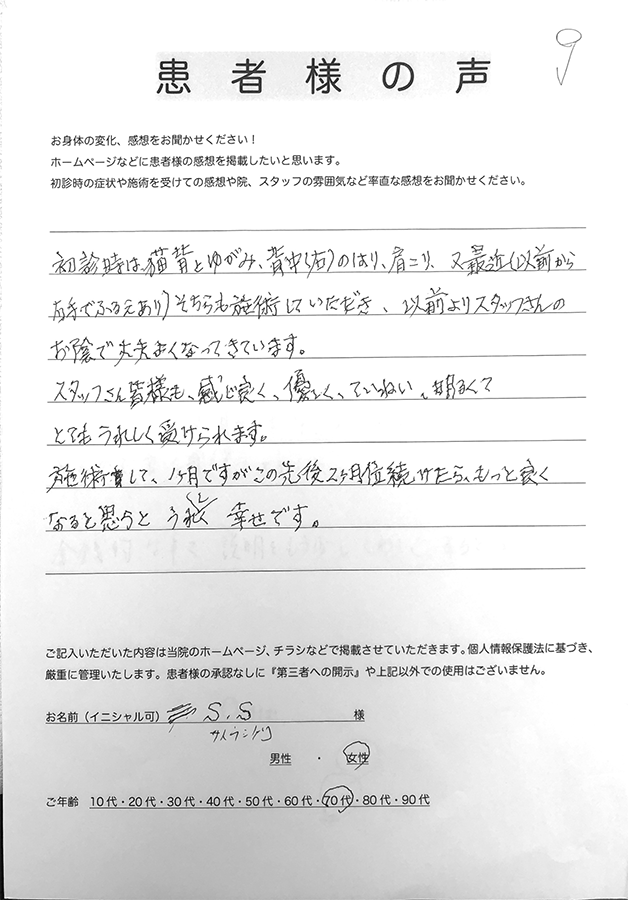 患者様の声
9
お身体の変化、感想をお聞かせください！
ホームページなどに患者様の感想を掲載したいと思います。
初診時の症状や施術を受けての感想や院、スタッフの雰囲気など率直な感想をお聞かせください。
初診時は、猫背とゆがみ、背中(右)のはり、肩こり、又最近(以前から
右手でふるえあり)そちらも施術していただき、以前よりスタッフさんの
お陰で大夫よくなってきています。
スタッフさん皆様も、感じ良く、優しく、ていねい、明るくて
とてもうれしく受けられます。
施術して、1ヶ月ですがこの先後2ヶ月位続けたら、もっと良く
なると思うと うれしく 幸せです。
ご記入いただいた内容は当院のホームページ、チラシなどで掲載させていただきます。個人情報保護法に基づき、
厳重に管理いたします。患者様の承認なしに『第三者への開示』や上記以外での使用はございません。
お名前（イニシャル可） S.S 様
男性 ・ 女性
ご年齢 10代・20代・30代・40代・50代・60代・70代・80代・90代